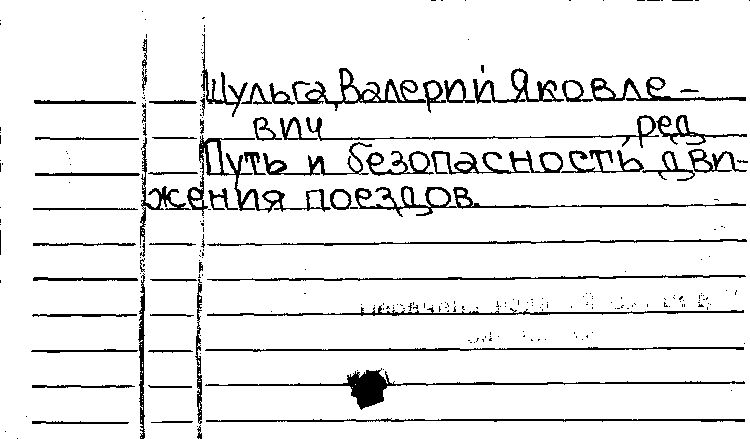 Шульга, Валерий Яковле-
вич , ред.
Путь и безопасность дви-
жения поездов.